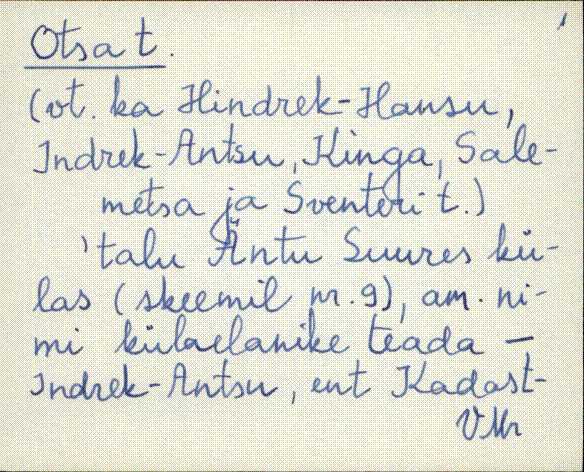 Otsa t.
(vt. ka Hindrek-Hansu,
Indrek-Antsu, Kinga, Sale-
metsa ja Sventeri t.)
'talu Äntu Suures kü-
las (skeemil nr. 9), am. ni-
mi külaelanike teada —
Indrek-Antsu, ent Kadast-
VMr